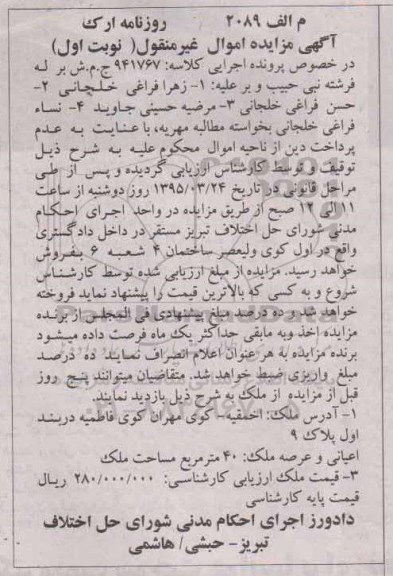 م الف ۲۰۸۹ روزنامه ارک
آگهی مزایده اموال غیرمنقول( نوبت اول)
در خصوص پرونده اجرایی کلاسه: ۹۴۱۷۶۷ج.م.ش بر له
فرشته نبی حبیب و بر علیه: ۱- زهرا فراغی خلجانی ۲-
حسن فراغی خلجانی ۳- مرضیه حسینی جاوید ۴- نساء
فراغی خلجانی بخواسته مطالبه مهریه، با عنایت به عدم
پرداخت دین از ناحیه اموال محکوم علیه به شرح ذیل
توقیف و توسط کارشناس ارزیابی گردیده و پس از طی
مراحل قانونی در تاریخ ۱۳۹۵/۰۳/۲۴ روز دوشنبه از ساعت
۱۱ الی ۱۲ صبح از طریق مزایده در واحد اجرای احکام
مدنی شورای حل اختلاف تبریز مستقر در داخل دادگستری
واقع در اول کوی ولیعصر ساختمان ۴ شعبه ۶ بفروش
خواهد رسید. مزایده از مبلغ ارزیابی شده توسط کارشناس
شروع و به کسی که بالاترین قیمت را پیشنهاد نماید فروخته
خواهد شد و ده درصد مبلغ پیشنهادی فی المجلس از برنده
مزایده اخذ وبه مابقی حداکثر یک ماه فرصت داده میشود
برنده مزایده به هر عنوان اعلام انصراف نمایند ده درصد
مبلغ واریزی ضبط خواهد شد. متقاضیان میتوانند پنج روز
قبل از مزایده از ملک به شرح ذیل بازدید نمایند.
۱- آدرس ملک: اخمقیه- کوی مهران کوی فاطمیه دربند
اول پلاک ۹
اعیانی و عرصه ملک: ۴۰ مترمربع مساحت ملک
۳- قیمت ملک ارزیابی کارشناسی: ۲۸۰/۰۰۰/۰۰۰ ریال
قیمت پایه کارشناسی
دادورز اجرای احکام مدنی شورای حل اختلاف
تبریز- حبشی/ هاشمی